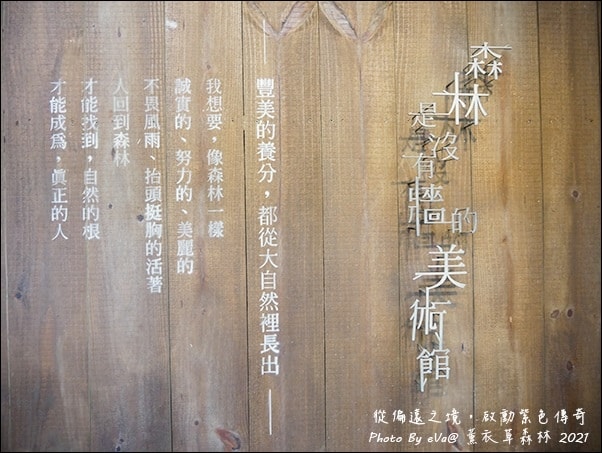 森林
是沒有牆的
美術館
──豐美的養分，都從大自然裡長出──
我想要，像森林一樣
誠實的、努力的、美麗的
不畏風雨、抬頭挺胸的活著
人回到森林
才能找到，自然的根
才能成為，真正的人
從偏遠之境，啟動紫色傳奇
Photo By eVa@ 薰衣草森林 2021